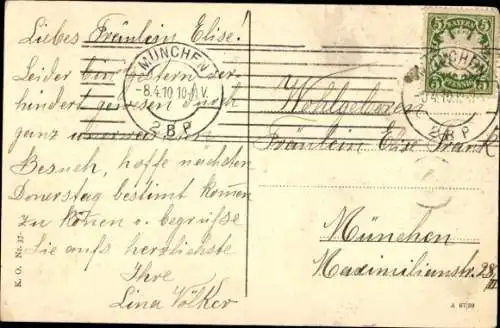 Liebes Fräulein Elise!
Leider bin gestern ver-
hindert gewesen durch
ganz
Besuch, hoffe nächsten
Donerstag bestimt komen
zu könen u. begrüße
Sie aufs herzlichste
Ihre
Lina Völker
MÜNCHEN
-8.4.10.10-11V.
2 B P
BAYERN
5 5
PFENNIG
MÜNCHEN
2 B P
Wohlgeboren
Fräulein Elise Frank
München
Maximilianstr. 28/III
K. O. Nr. 37